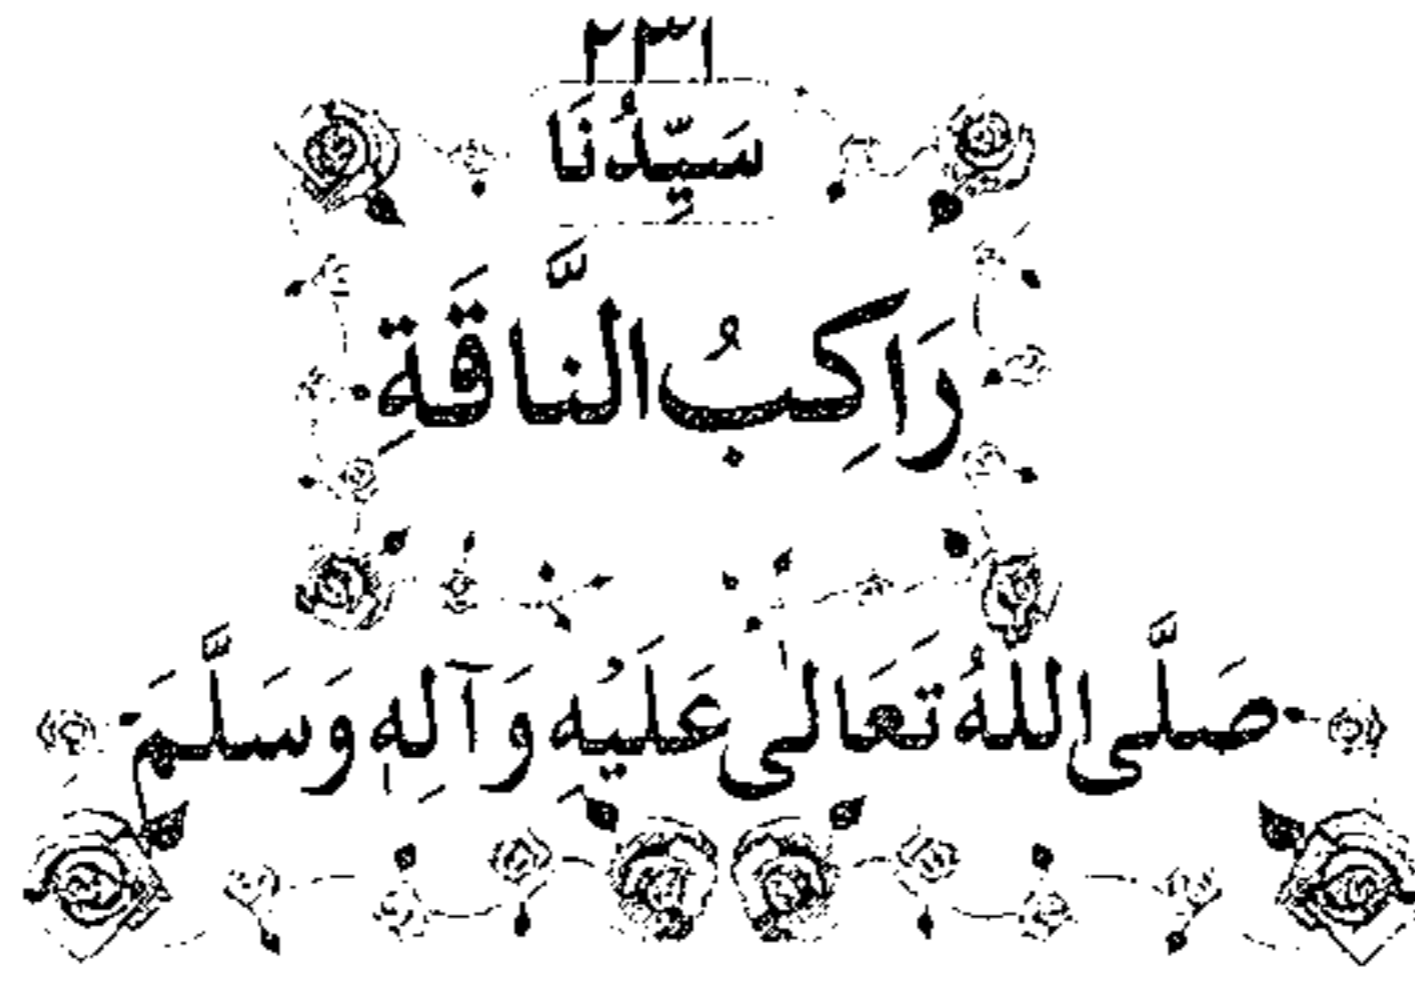 ٢٣١
سَيِّدُنَا
رَاكِبُ النَّاقَةِ
صَلَّى اللهُ تَعَالٰى عَلَيْهِ وَآلِهٖ وَسَلَّمَ